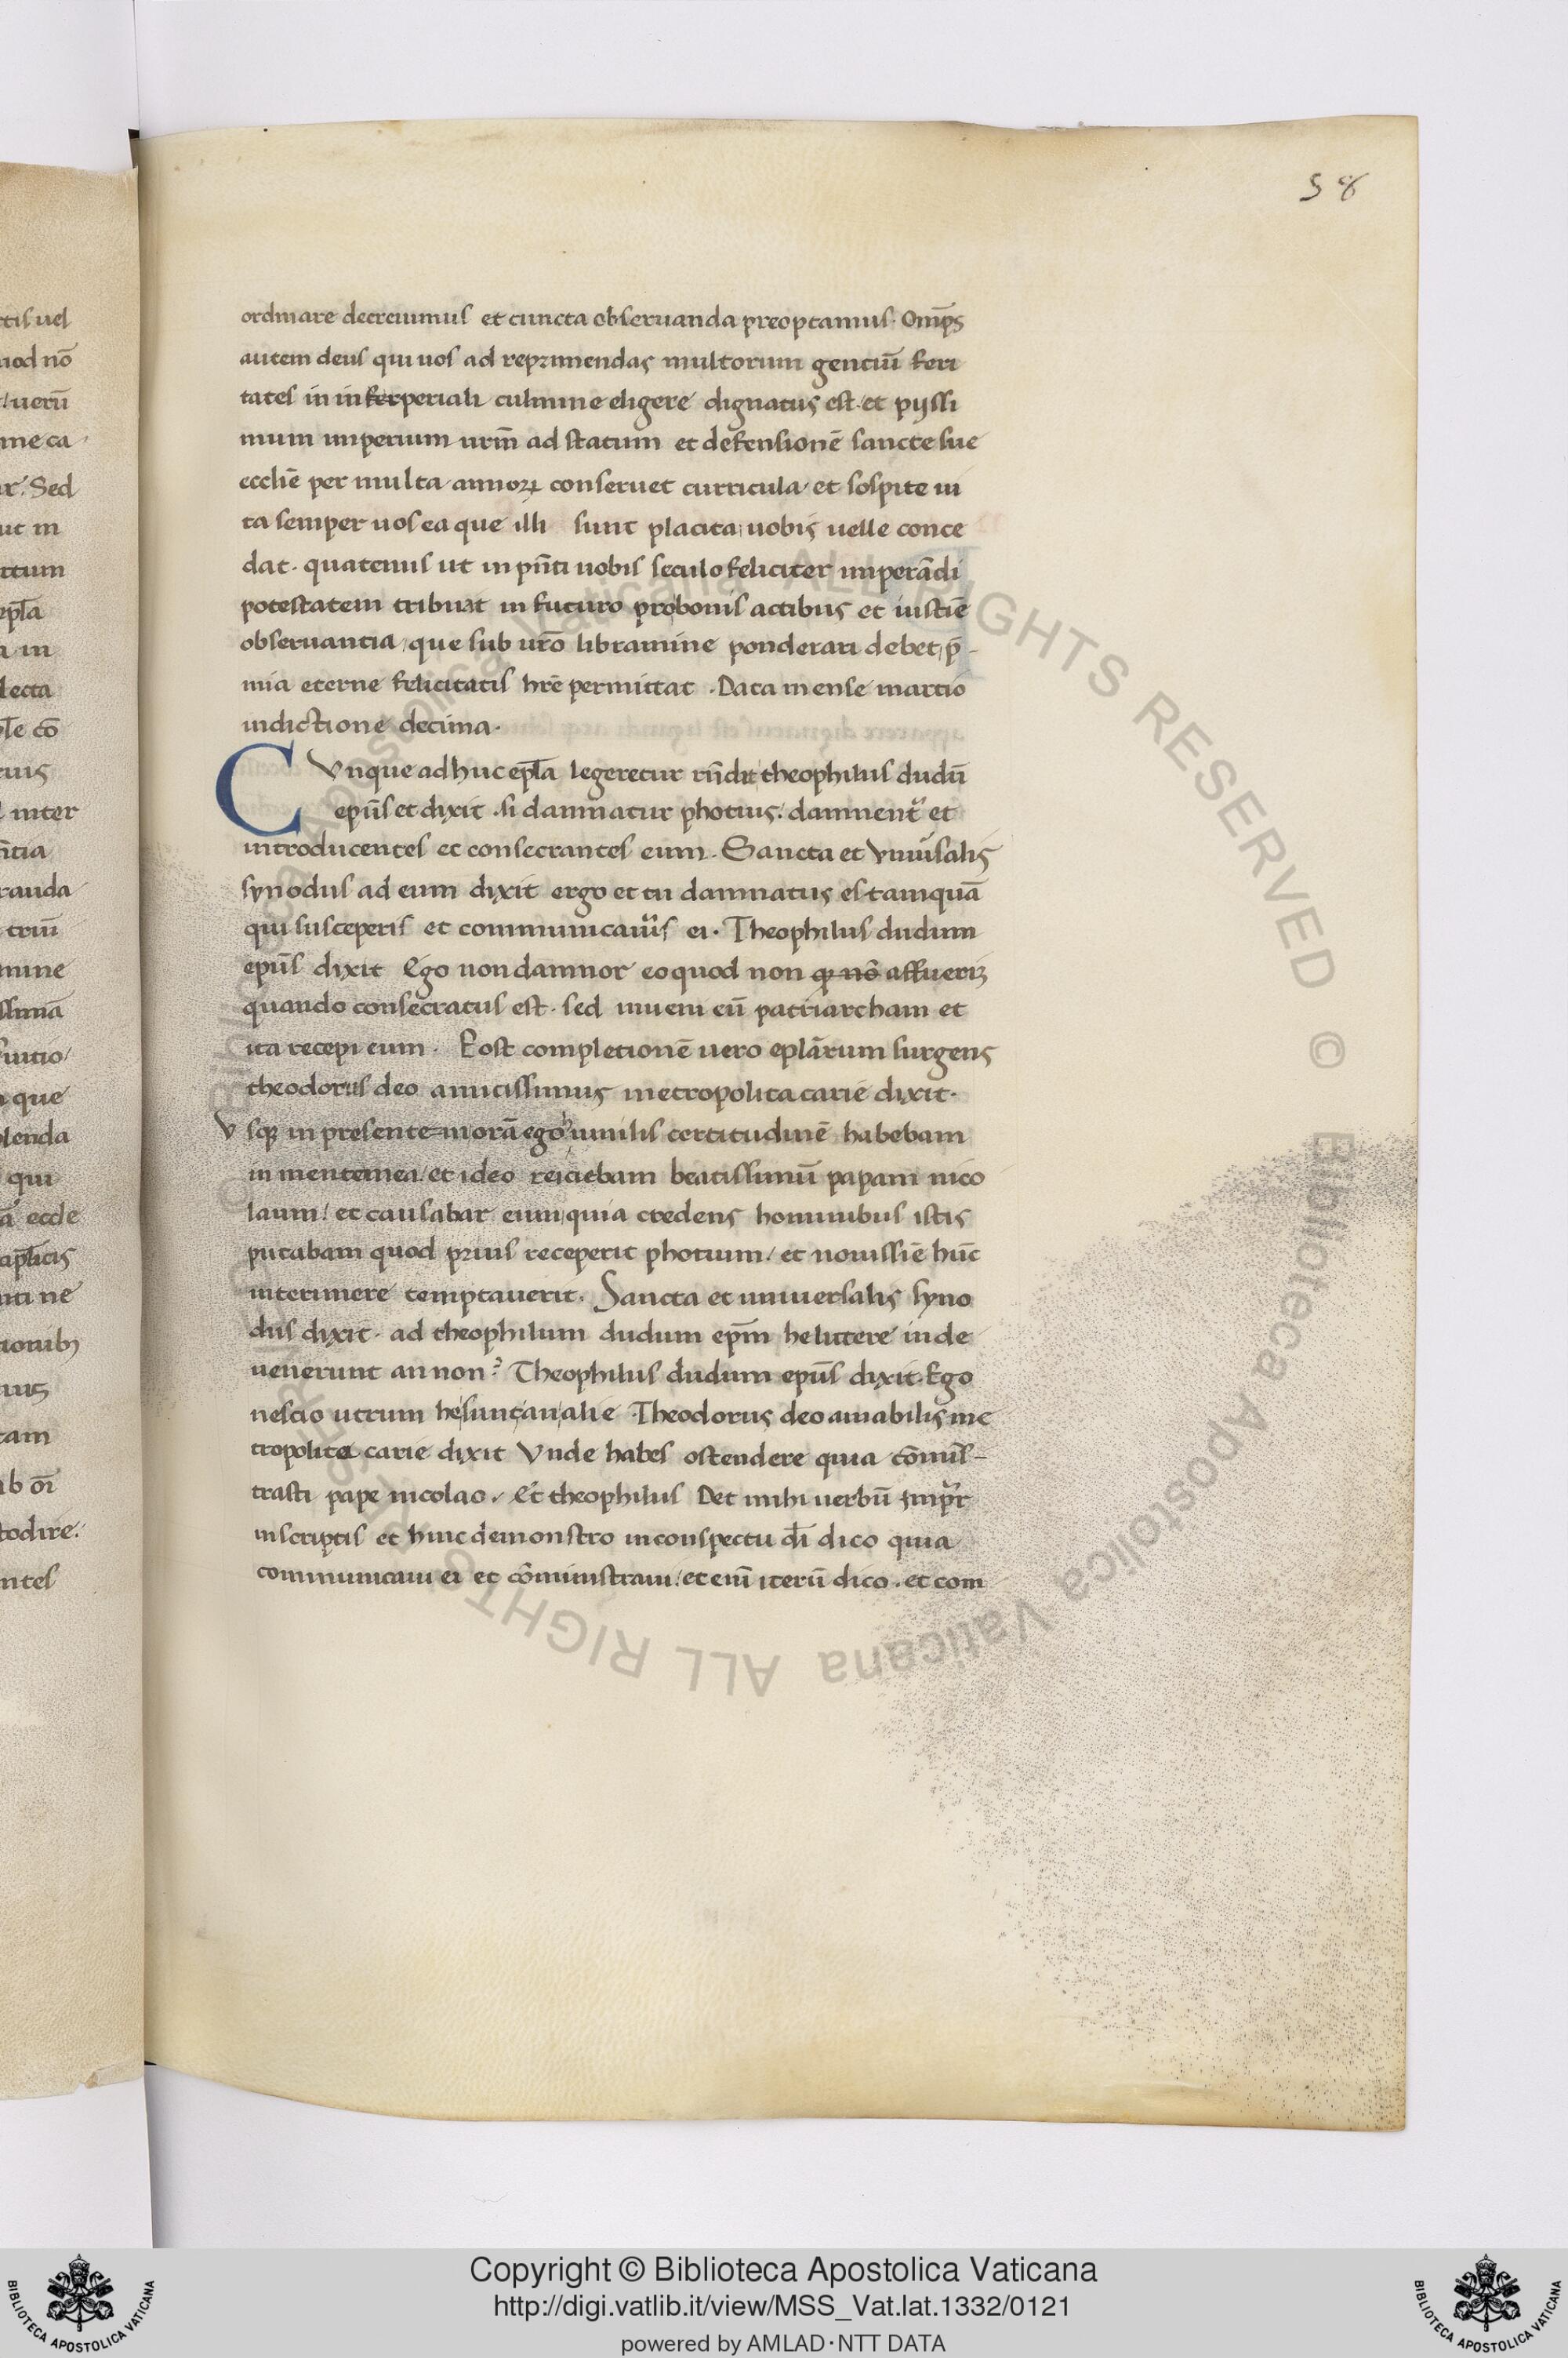 58
ordinare decreuimus et cuncta obseruanda preoptamus. Om̅ps
autem deus qui uos ad reprimendas multorum gentiu̅ feri
tates in in fer periali culmine eligere dignatus est. et pijssi
mum imperium ur̅m ad statum et defensione̅ sancte sue
eccli̅e per multa annoꝝ conseruet curricula et sospite ui
ta semper uos ea que illi sunt placita uobis uelle conce
dat. quatenus ut in pn̅ti uobis seculo feliciter impera̅di
potestatem tribuat in futuro pro bonis actibus et iusti̅e
obseruantia, que sub ur̅o libramine ponderari debet, p̅
mia eterne felicitatis hr̅e permittat. Data mense martio
indictione decima.
CVnque adhuc epl̅a legeretur rn̅dit theophilus dudu̅
epu̅s et dixit. si damnatur photius. damnent᷑ et
introducentes et consecrantes eum. Sancta et Vniu᷑salis
synodus ad eum dixit ergo et tu damnatus es tamqua̅
qui susceperis et communicau᷑is ei. Theophilus dudum
epu̅s dixit Ego non damnor eo quod non qꝛ no̅ affuerim
quando consecratus est. sed inueni eu̅ patriarcham et
ita recepi eum. Post completione̅ uero epl̅arum surgens
theodorus deo amicissimus metropolita carie dixit.
Vsqꝫ in presente mora̅ ego humilis certitudine̅ habebam
in mente mea. et ideo reiciebam beatissimu̅ papam nico
laum. et causabar eum, quia credens hominibus istis
putabam quod prius receperit photium. et nouissi̅e hu̅c
interimere temptauerit. Sancta et uniuersalis syno
dus dixit. ad theophilum dudum ep̅m he littere inde
uenerunt an non? Theophilus dudum epu̅s dixit. Ego
nescio utrum he sunt, an alie. Theodorus deo amabilis me
tropolita carie dixit Vnde habes ostendere quia co̅mis̅-
trasti pape nicolao. Et theophilus Det mihi uerbu̅ imp᷑r
in scriptis et hinc demonstro in conspectu di̅ dico quia
communicaui ei et co̅ministraui. et eni̅ iteru̅ dico. et com
tis uel
uod no̅
ueru̅
me ca
Sed
ut in
epl̅a
a in
lecta
co̅
inter
randa
triu̅
mine
ssima̅
que
lenda
qui
eccle
apl̅icis
ti ne
tam
todire.
ntes
ALL RIGHTS RESERVED © Biblioteca Apostolica Vaticana ALL RIGHTS
Copyright © Biblioteca Apostolica Vaticana
http://digi.vatlib.it/view/MSS_Vat.lat.1332/0121
powered by AMLAD·NTT DATA
BIBLIOTECA APOSTOLICA VATICANA
BIBLIOTECA APOSTOLICA VATICANA